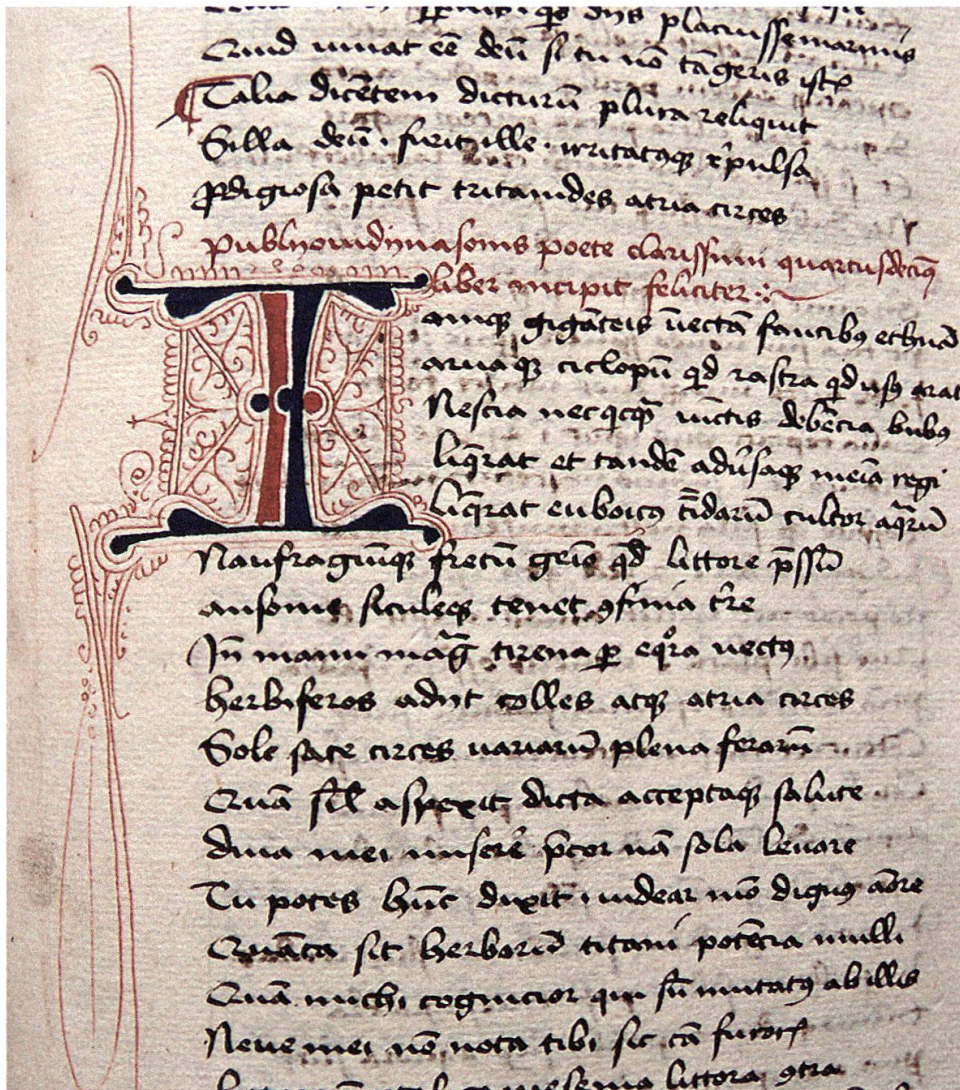 Quid iuuat eē deū si tu nō tāgeris istꝭ
Talia dicētem dicturū plura reliquit
Silla deū · furit ille · irritatusqꝫ r̓pulsa
ꝓdigiosa petit tritanides atria circes
publij ouidij nasonis poete clarissimi quartusdeciꝰ
liber incipit feliciter
Iamqꝫ gigāteis īiectā faucibꝰ ethnā
aruaqꝫ ciclopū qͥd rastra qͥd usꝰ arat
Nescia nec qͥcqͣꝫ iūctis debēcia bubꝰ
liq̄rat et tandē aduˀsaqꝫ meīa regi
liq̄rat euboicꝰ tīdarū cultor aq̄rū
Naufragiūqꝫ fretū geīo qd̓ littore p̄ssū
ausonie siculeqꝫ tenet ꝯfīnia tr̓e
In̄ manu maḡ tirena ꝑ eqͦra uectꝰ
herbiferos adijt colles atqꝫ atria circes
Sole sate circes uariarū plena ferarū
Quā sil̓ aspexit dicta acceptaqꝫ salute
diua mei miserer̓ p̄cor nā sola leuare
Tu potes hūc dixit uidear mō dignꝰ aōre
Quāta sit herbarū titani potēcia nulli
Quā michi cognicior qui sū mutatꝰ ab illis
Neue mei nō nota tibi sit cā furorꝭ
littora ꝯtra